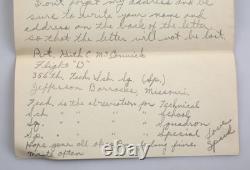 Don't forget my address and be
sure to write your name and
address on the back of the letter
so that the letter will not be lost.
Pvt. Keith C McCormick
Flight "D"
356th Tech. Sch. Sq. (Sp.)
Jefferson Barracks, Missouri.
Tech. is the abreviation for Technical
Sch. " " " " School,
Sq. " " " " Squadron
Sp. " " " " Special
Hope your all of feeling fine.
Write often
Love